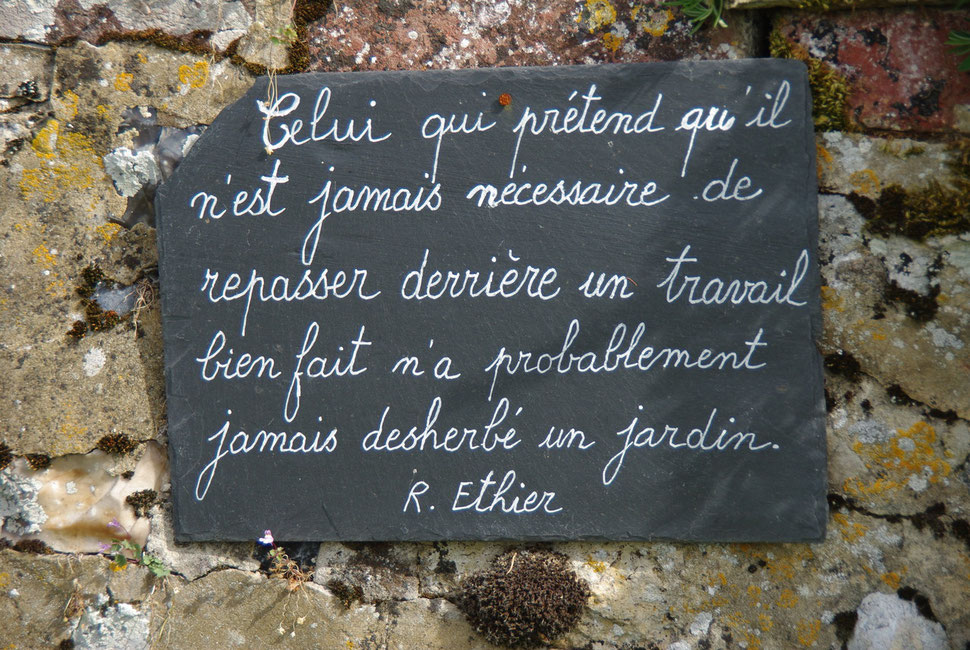 Celui qui prétend qu'il
n'est jamais nécessaire de
repasser derrière un travail
bien fait n'a probablement
jamais desherbé un jardin.
R. Ethier